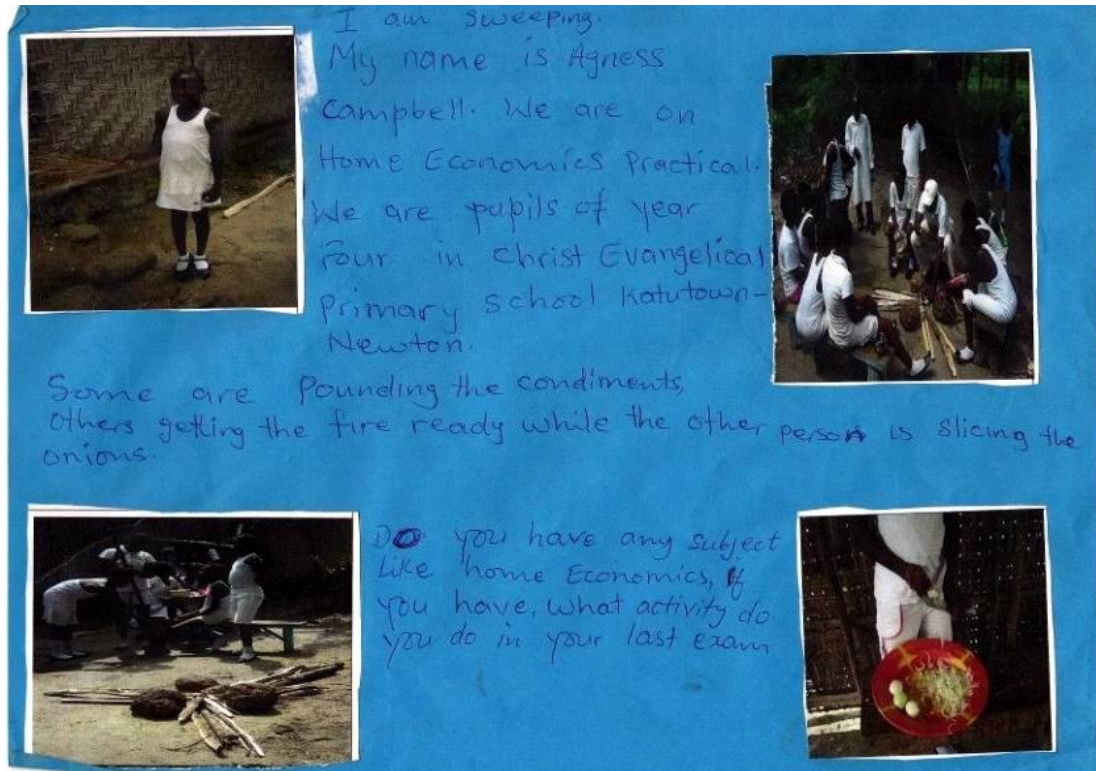 I am sweeping.
My name is Agness
Campbell. We are on
Home Economics Practical.
We are pupils of year
Four in Christ Evangelical
Primary School Katutown-
Newton.
Some are Pounding the condiments,
others getting the fire ready while the other person is slicing the
onions.
Do you have any subject
Like home Economics, if
you have, what activity do
you do in your last exam